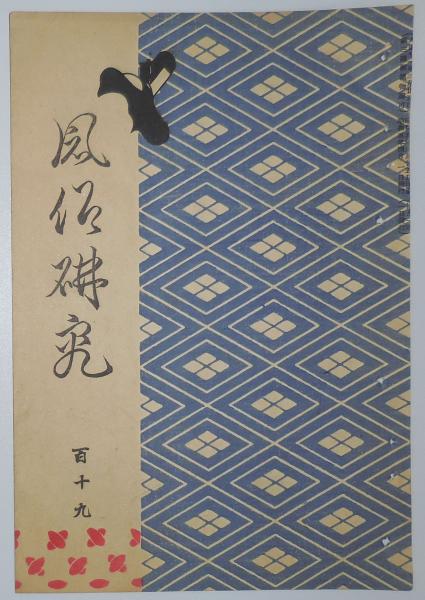 風俗研究
百十九